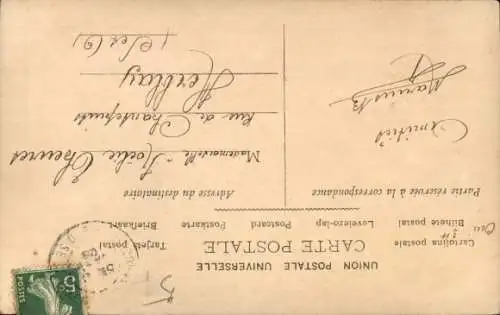 UNION POSTALE UNIVERSELLE
CARTE POSTALE
Cartolina postale Tarjeta postal
Bilhete postal Levelezo-lap Postcard Postkarte Briefkaart
Partie réservée à la correspondance
Amitiés
Adresse du destinataire
Mademoiselle
Rue de Chantepuits
Herblay
5c